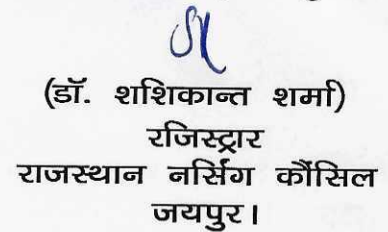 (डॉ. शशिकान्त शर्मा)
रजिस्ट्रार
राजस्थान नर्सिंग कौंसिल
जयपुर।